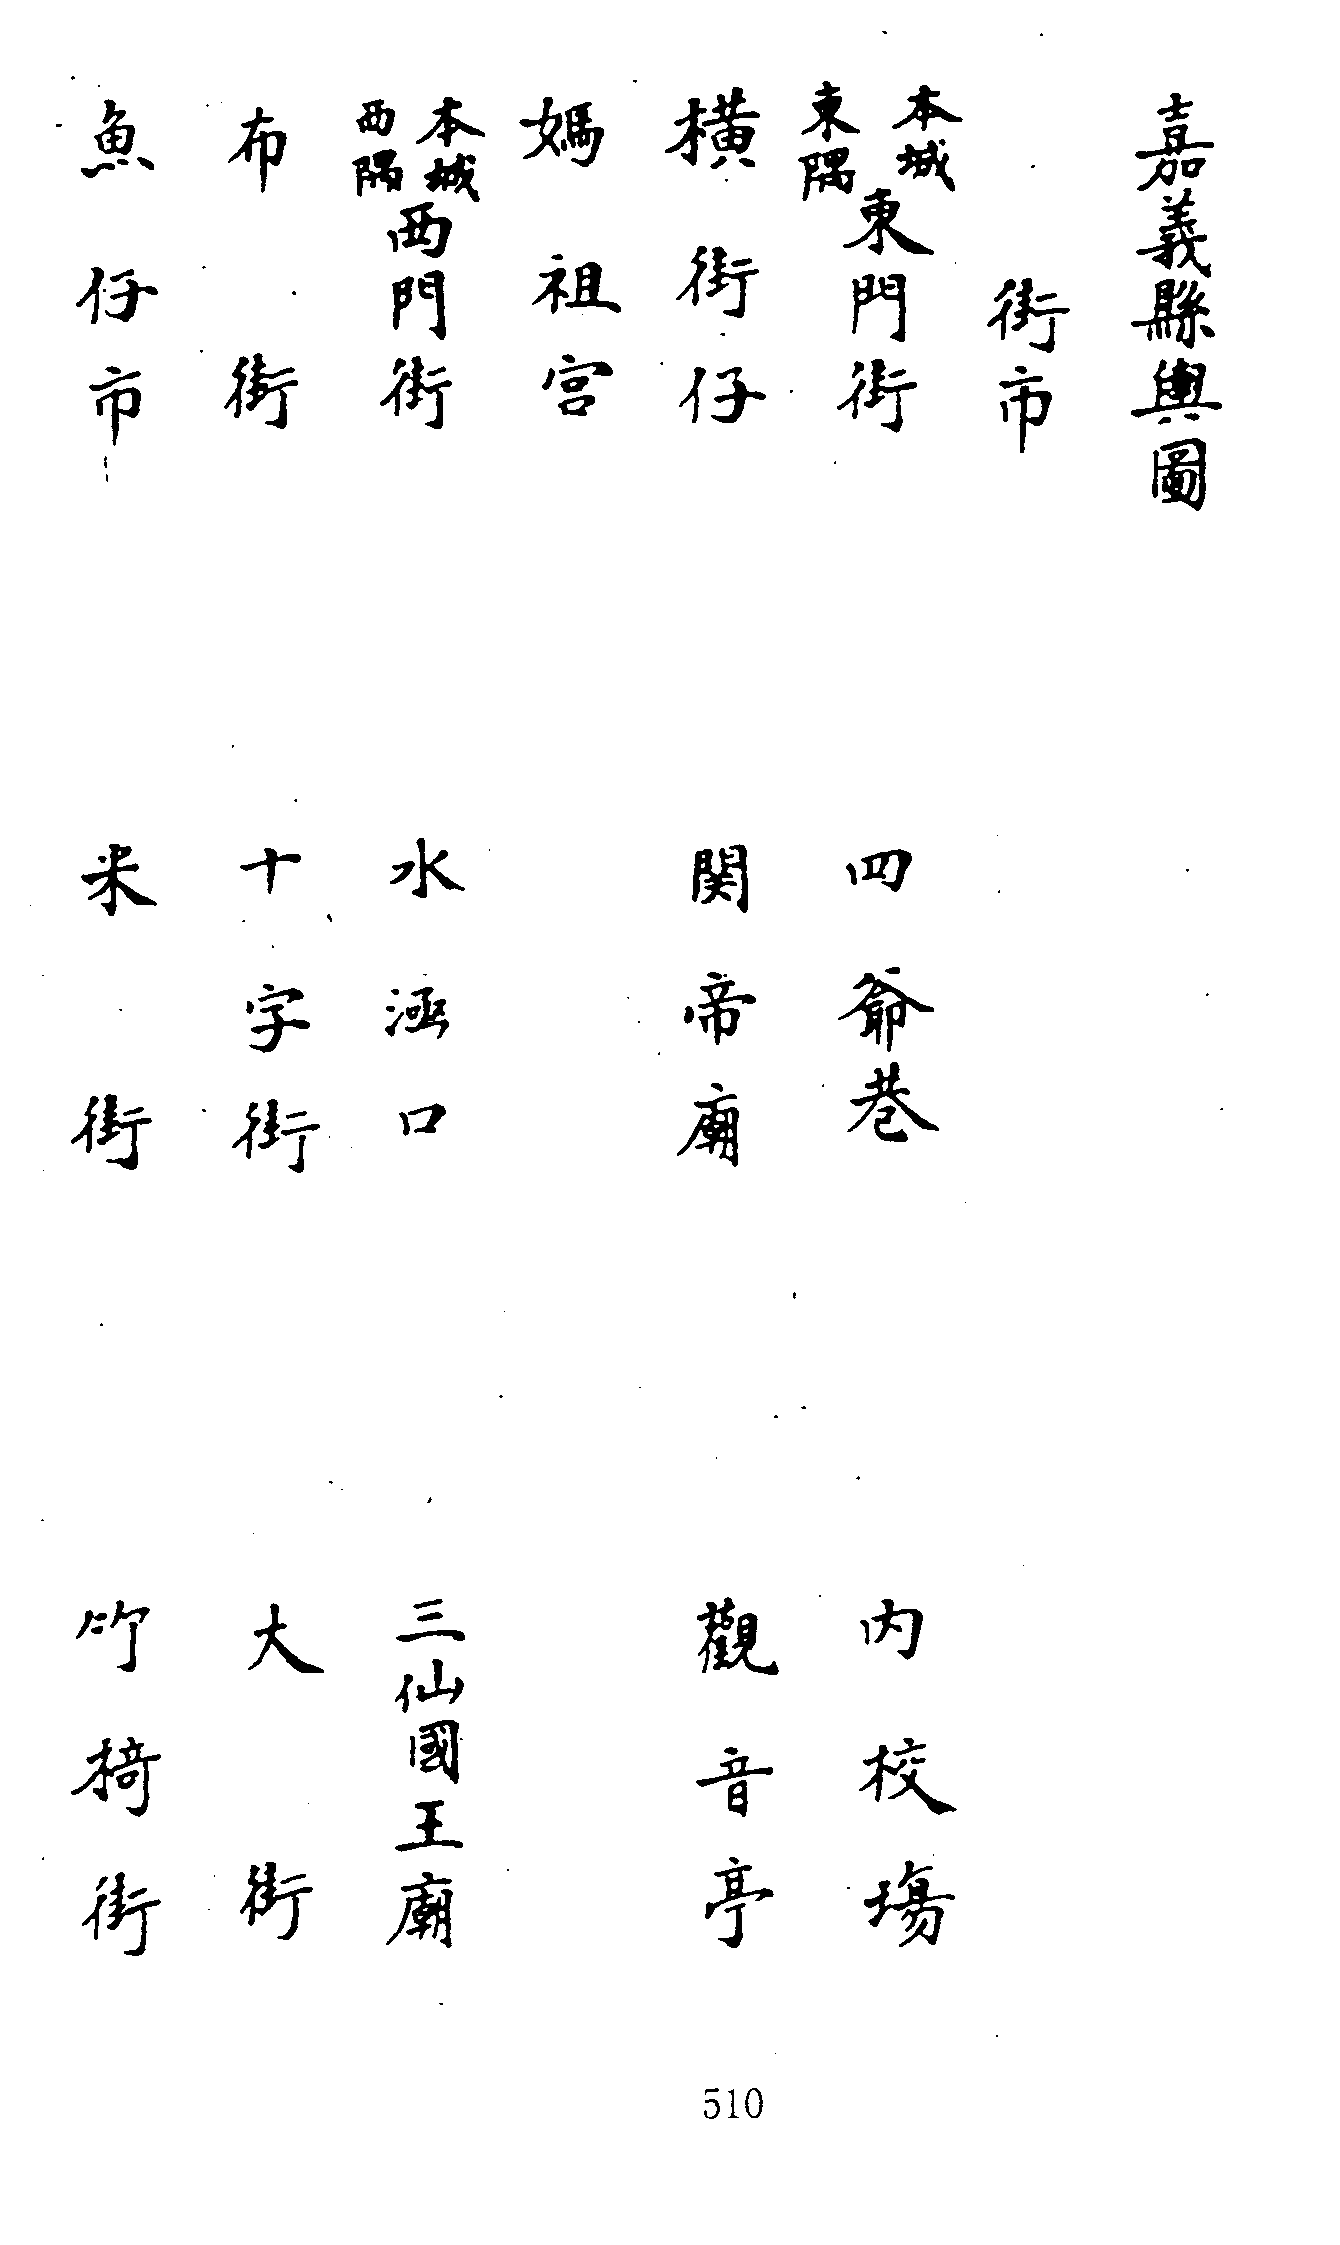 嘉義縣輿圖
街市
本城東隅東門街 四爺巷 內校場
橫街仔 関帝廟 觀音亭
媽祖宮
本城西隅西門街 水涵口 三仙國王廟
布街 十字街 大街
魚仔市 米街 竹椅街
510